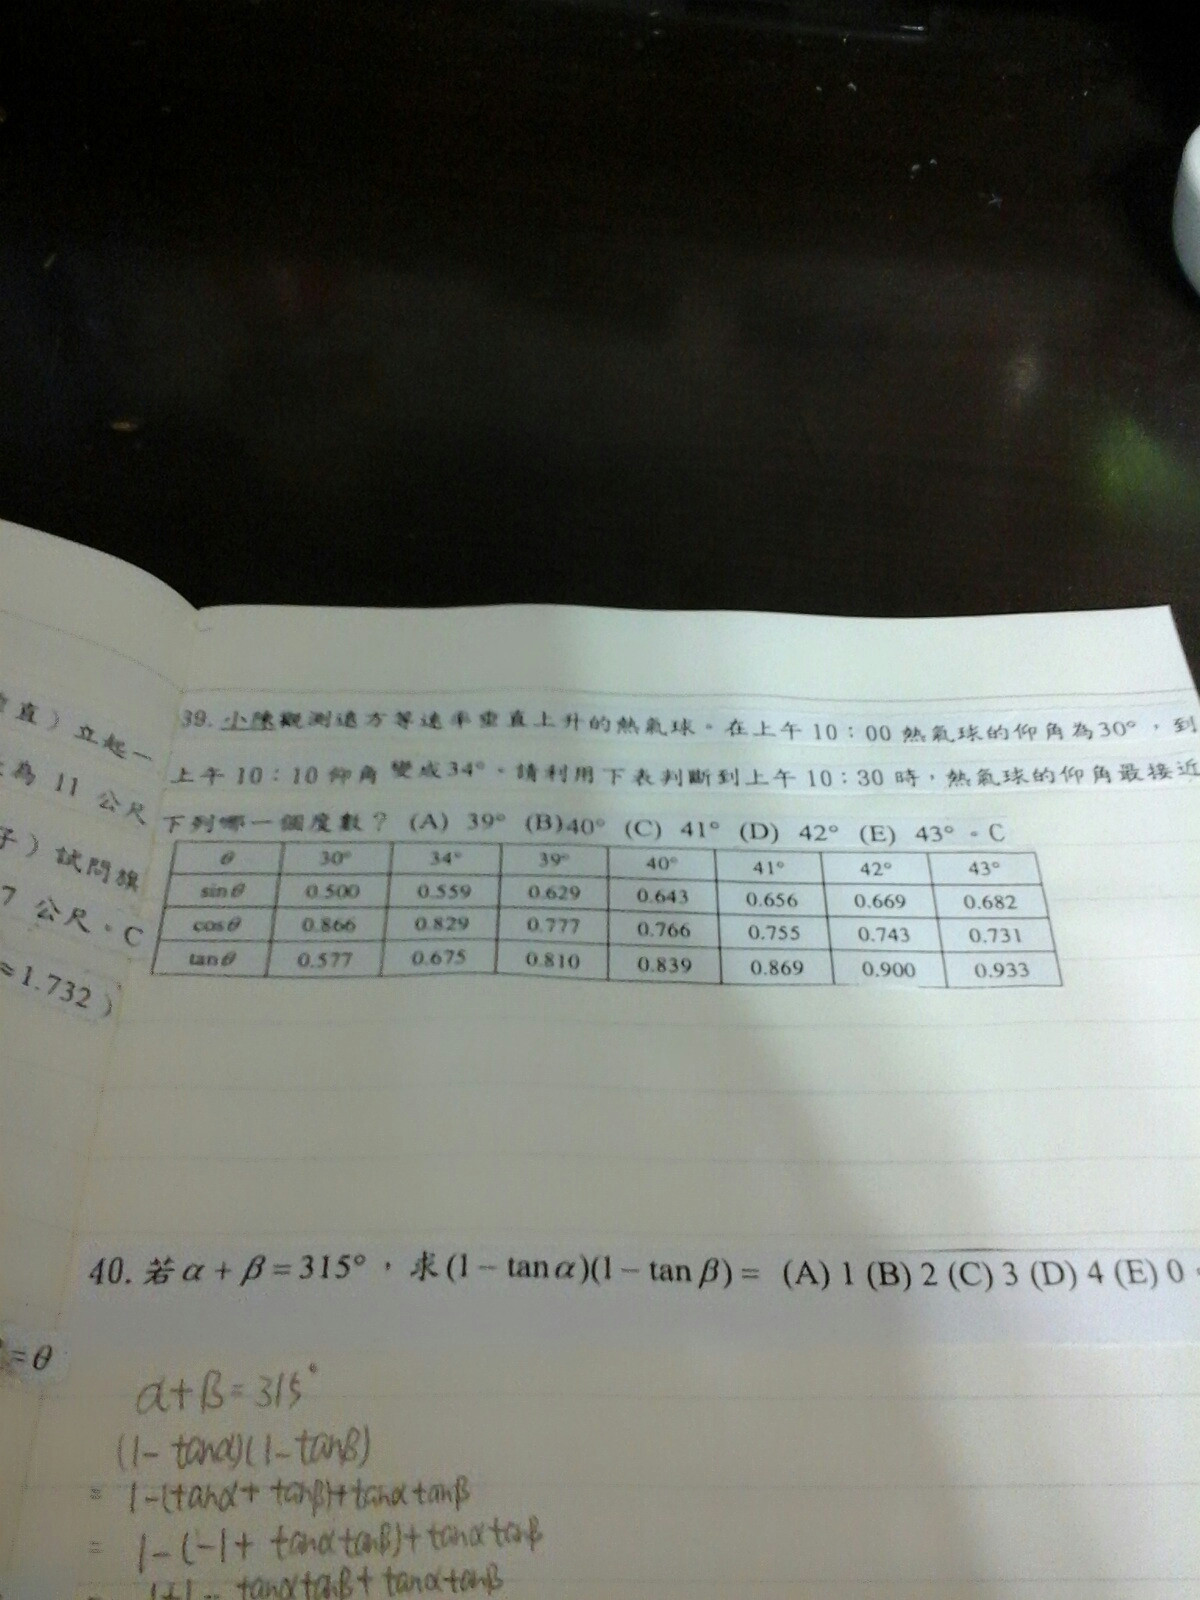 直）立起一
為 11 公尺
子）試問旗
7 公尺。C
≈1.732）
=θ
39. 小陳觀測遠方等速率垂直上升的熱氣球。在上午 10：00 熱氣球的仰角為30°，到
上午 10：10 仰角 變成34°。請利用下表判斷到上午 10：30 時，熱氣球的仰角最接近
下列哪一個度數？ (A) 39° (B)40° (C) 41° (D) 42° (E) 43°。C
θ 30° 34° 39° 40° 41° 42° 43°
sinθ 0.500 0.559 0.629 0.643 0.656 0.669 0.682
cosθ 0.866 0.829 0.777 0.766 0.755 0.743 0.731
tanθ 0.577 0.675 0.810 0.839 0.869 0.900 0.933
40. 若α + β = 315°，求(1 − tan α)(1 − tan β) = (A) 1 (B) 2 (C) 3 (D) 4 (E) 0
α+β=315°
(1- tanα)(1-tanβ)
= 1-(tanα+ tanβ)+tanα tanβ
= 1-(-1+ tanαtanβ)+tanαtanβ
= 1+1- tanαtanβ+ tanαtanβ